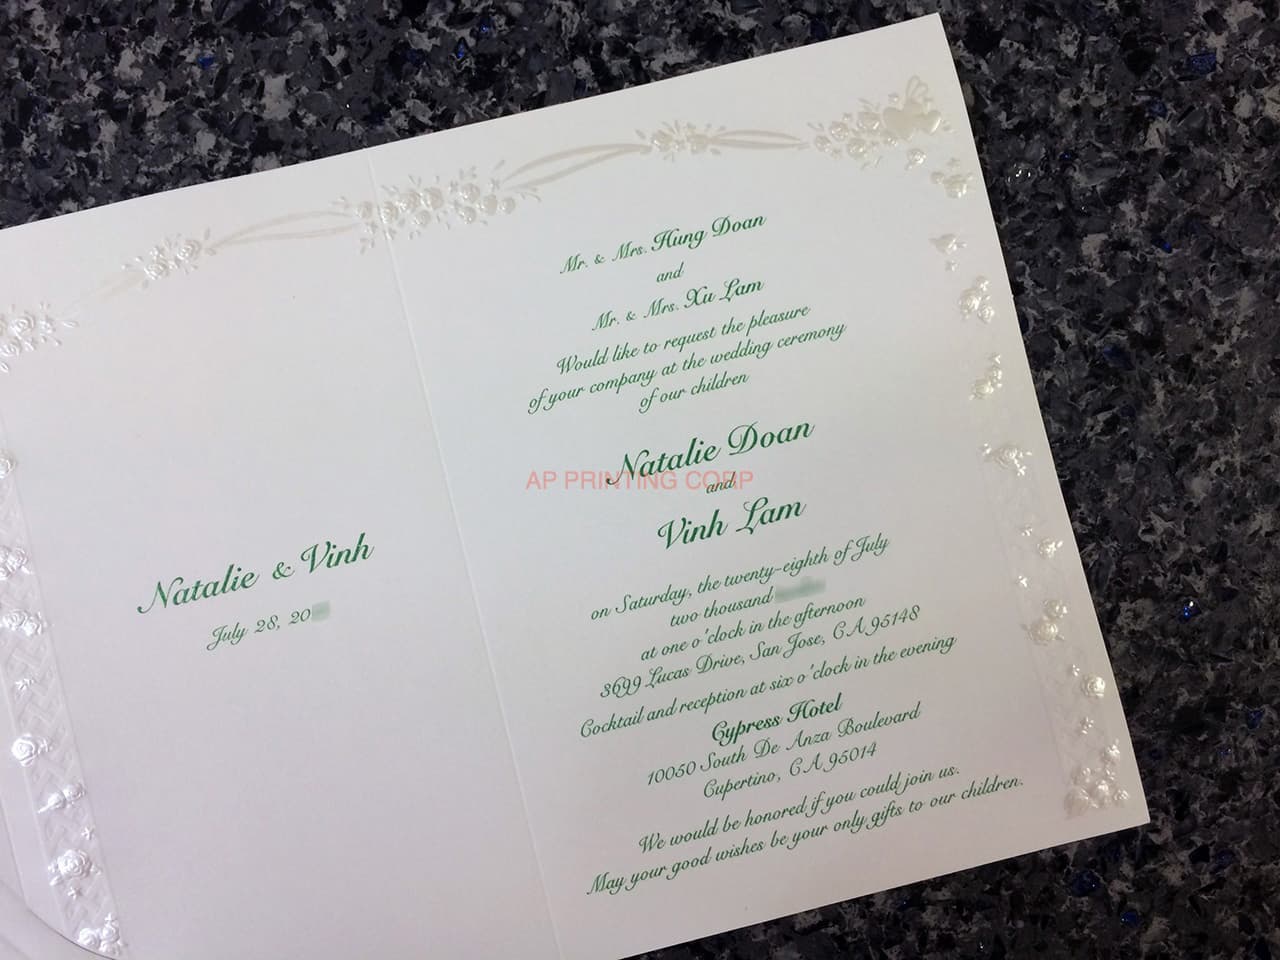 Natalie & Vinh
July 28, 20
Mr. & Mrs. Hung Doan
and
Mr. & Mrs. Xu Lam
Would like to request the pleasure
of your company at the wedding ceremony
of our children
Natalie Doan
AP PRINTING CORP
and
Vinh Lam
on Saturday, the twenty-eighth of July
two thousand
at one o'clock in the afternoon
3699 Lucas Drive, San Jose, CA 95148
Cocktail and reception at six o'clock in the evening
Cypress Hotel
10050 South De Anza Boulevard
Cupertino, CA 95014
We would be honored if you could join us.
May your good wishes be your only gifts to our children.